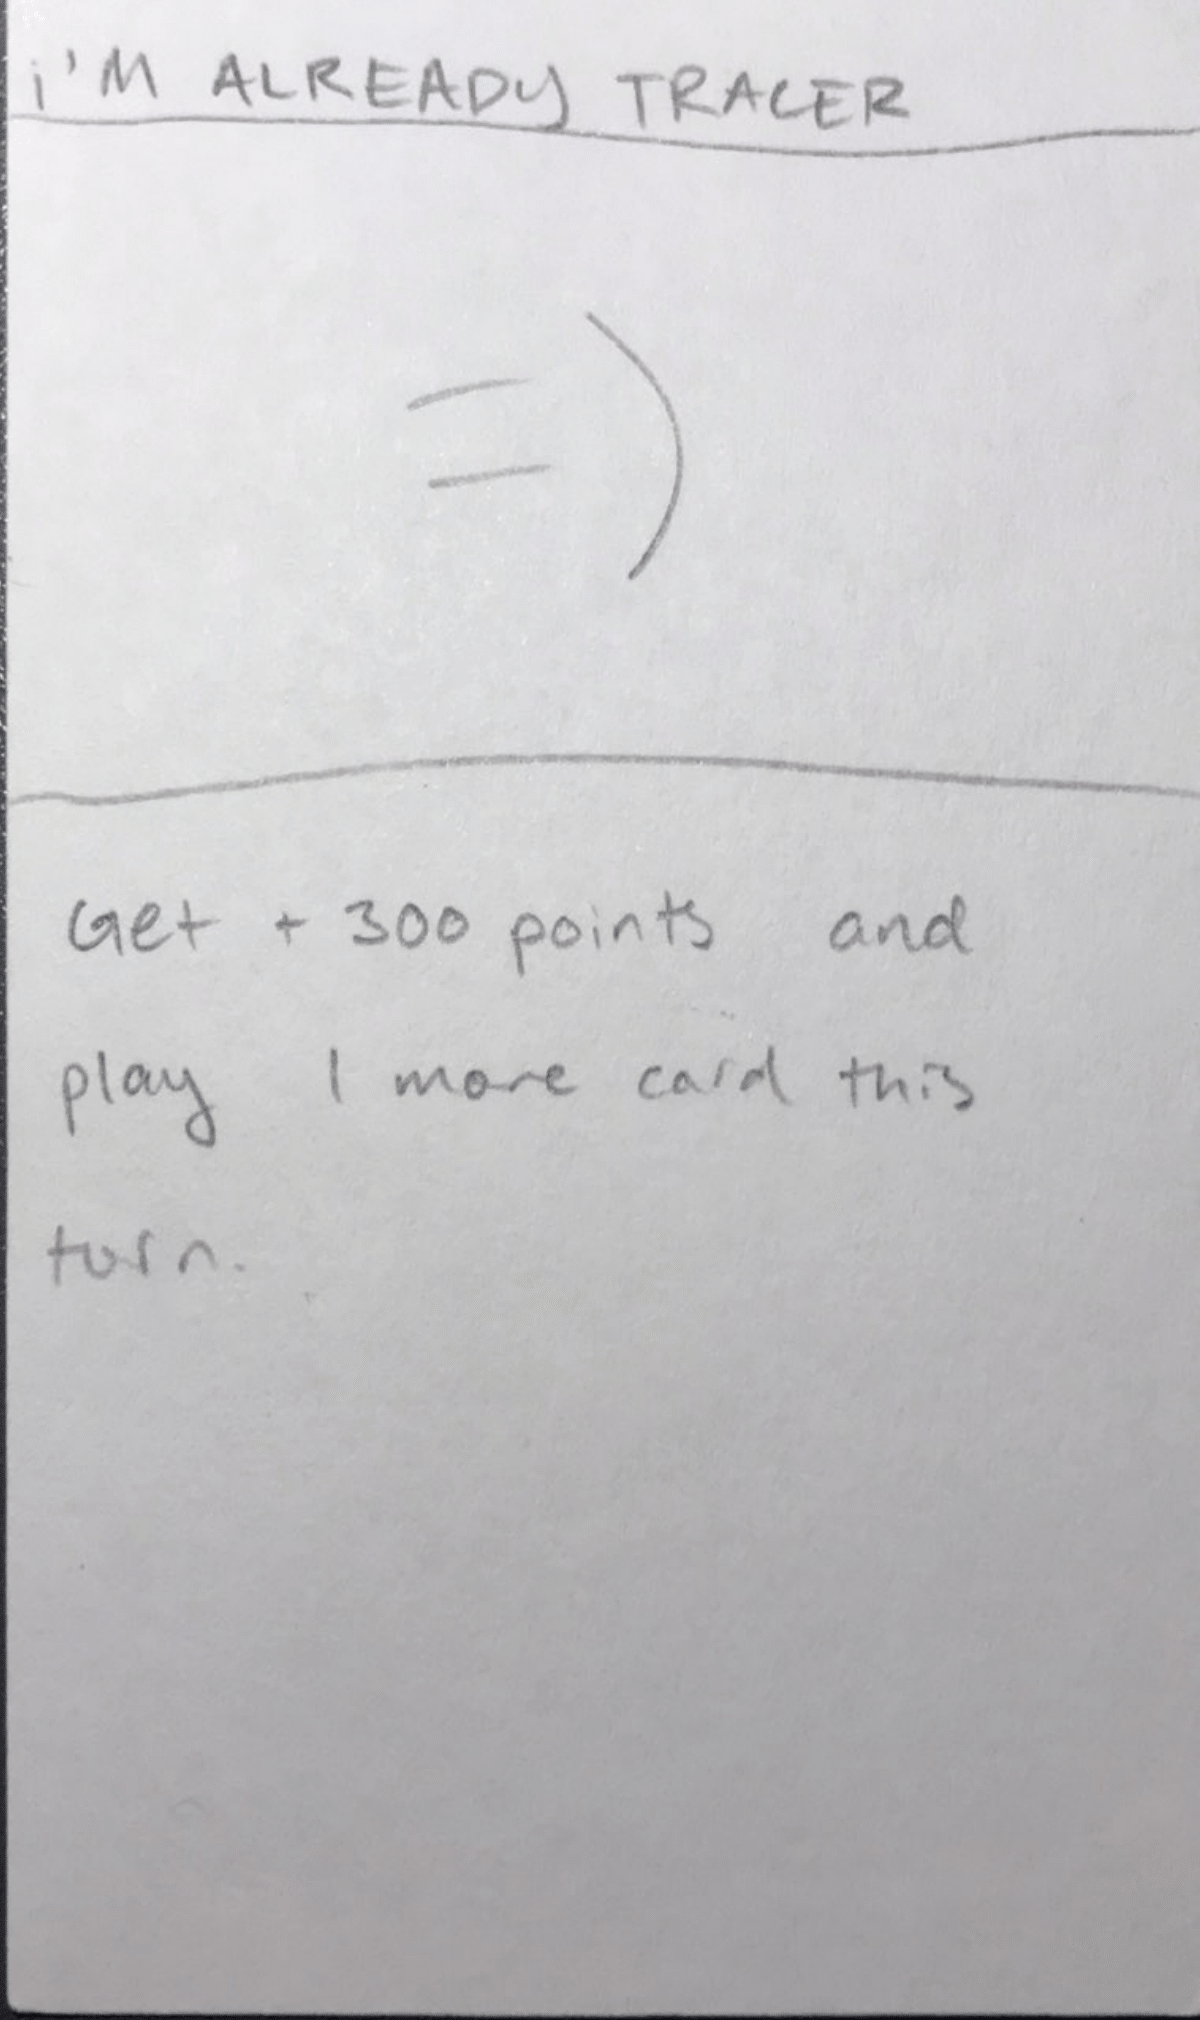 i'M ALREADY TRACER
=)
Get + 300 points and
play 1 more card this
turn.